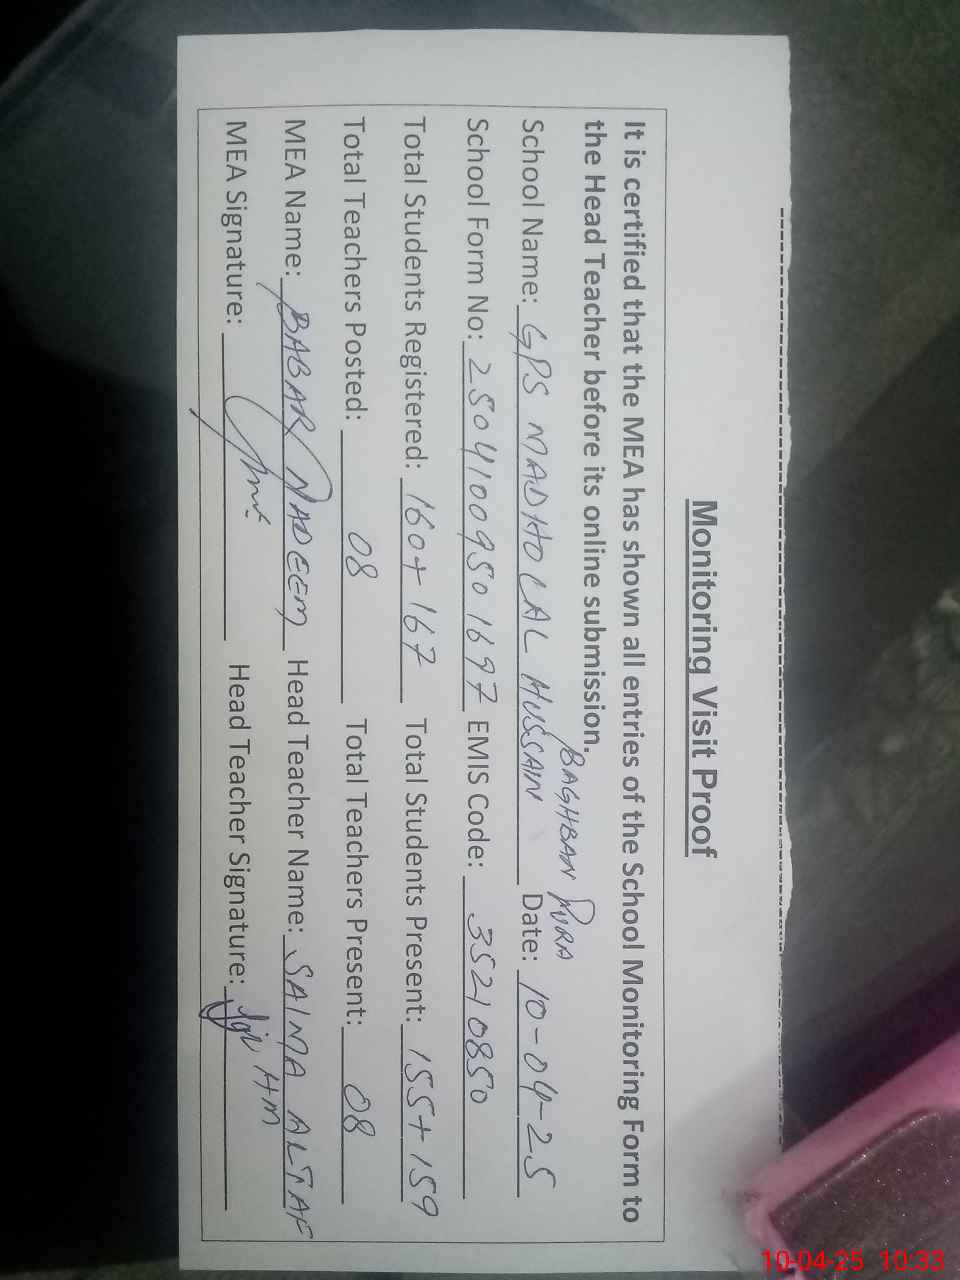 Monitoring Visit Proof
It is certified that the MEA has shown all entries of the School Monitoring Form to
the Head Teacher before its online submission.
BAGHBAN PURA
School Name: GPS MADHO LAL HUSSAIN Date: 10-04-25
School Form No: 25041009501697 EMIS Code: 35210850
Total Students Registered: 160+167 Total Students Present: 155+159
Total Teachers Posted: 08 Total Teachers Present: 08
MEA Name: BABAR NADEEM Head Teacher Name: SAIMA ALTAF
MEA Signature: Head Teacher Signature: HM
10-04-25 10:33